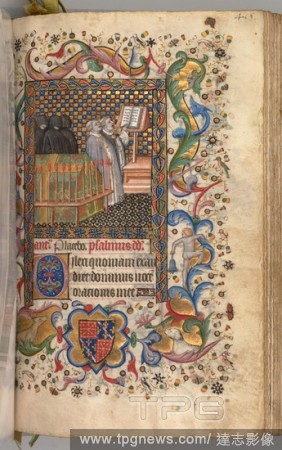 ane. Placebo. psalmus dd.
Dilexi quoniam exau
diet dominus voce
orationis mee
TPG
www.tpgnews.com/ 達志影像